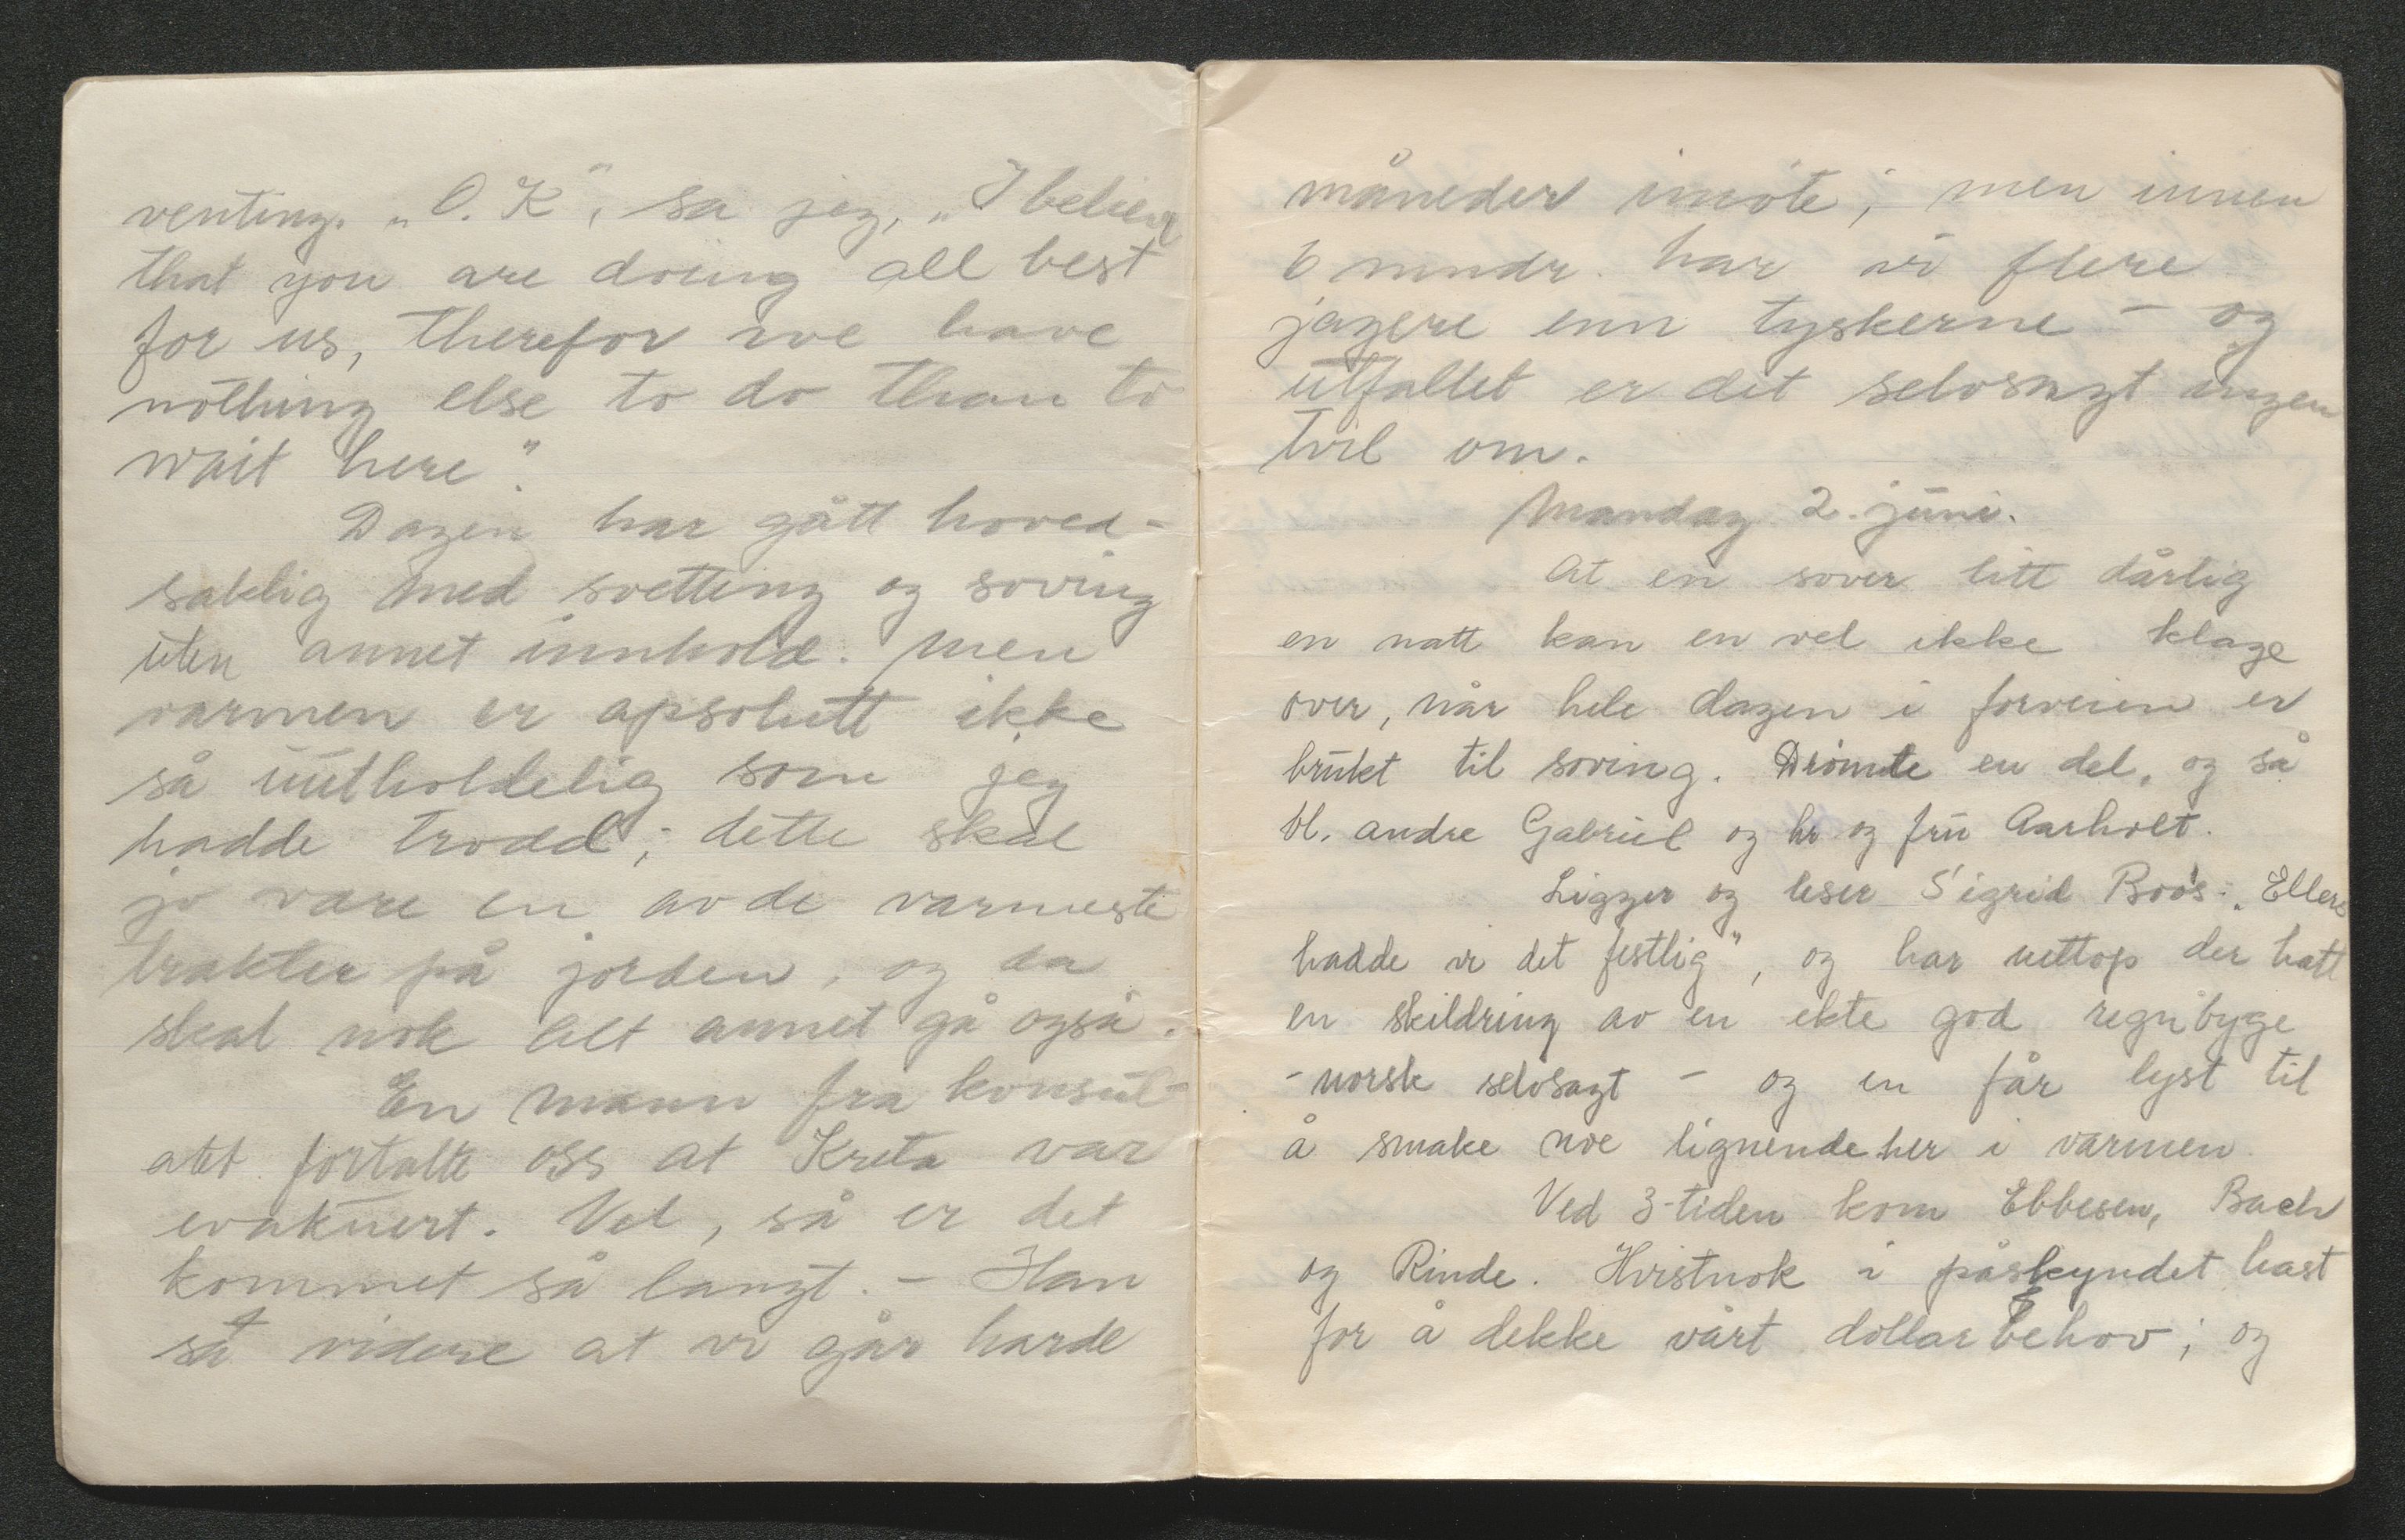 venting. „O.K", sa jeg, „I believe
that you are doing all best
for us, therefor we have
nothing else to do than to
wait here".
Dagen har gått hoved-
saklig med svetting og soving
uten annet innhold. Men
varmen er apsolutt ikke
så uutholdelig som jeg
hadde trodd; dette skal
jo være en av de varmeste
trakter på jorden, og da
skal nok alt annet gå også.
En mann fra konsul-
atet fortalte oss at Kreta var
evakuert. Vel, så er det
kommet så langt. - Han
sa videre at vi går harde
måneder imøte; men innen
6 mndr. har vi flere
jagere enn tyskerne - og
utfallet er det selvsagt ingen
tvil om.
Mandag 2. juni.
At en sover litt dårlig
en natt kan en vel ikke klage
over, når hele dagen i forveien er
brukt til soving. Drømte en del, og så
bl. andre Gabriel og hr og fru Aarholt.
Ligger og leser Sigrid Boo's: „Ellers
hadde vi det festlig", og har nettop der hatt
en skildring av en ekte god regnbyge
- norsk selvsagt - og en får lyst til
å smake noe lignende her i varmen.
Ved 3-tiden kom Ebbesen, Bach
og Rinde. Hvistnok i påskyndet hast
for å dekke vårt dollarbehov; og